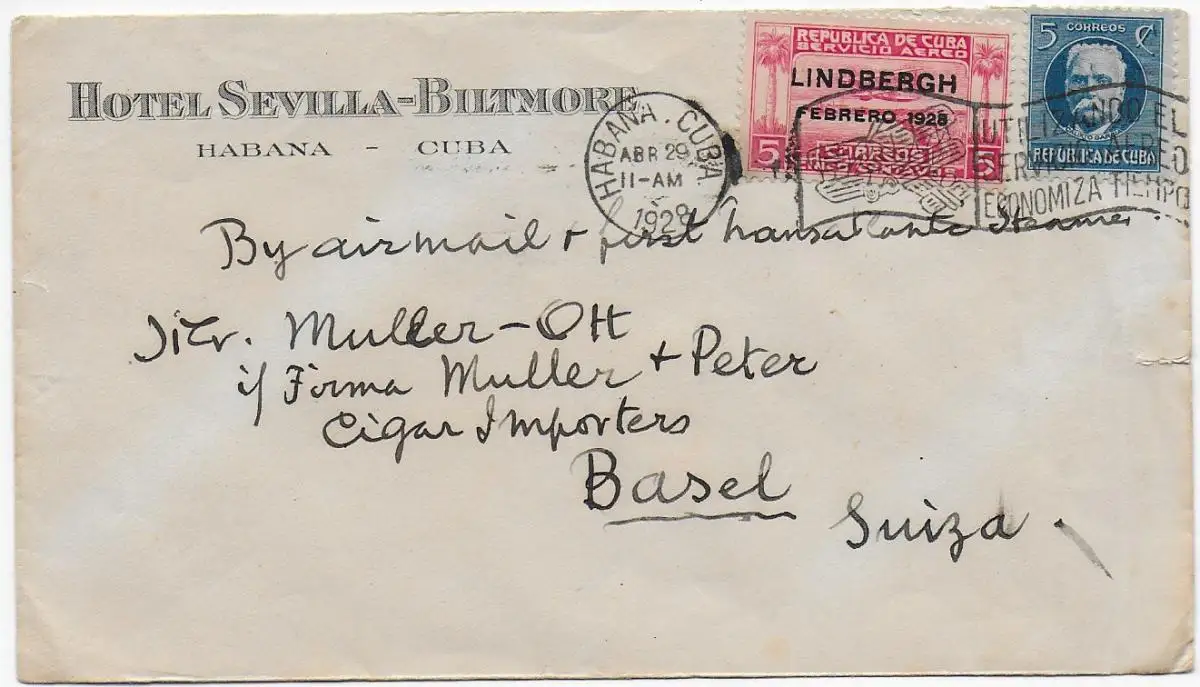 HOTEL SEVILLA-BILTMORE
HABANA - CUBA
HABANA. CUBA
ABR 29
11-AM
1928
REPUBLICA DE CUBA
SERVICIO AEREO
LINDBERGH
FEBRERO 1928
5 5
CORREOS
5 ¢
REPUBLICA DE CUBA
UTILIZANDO EL
SERVICIO AEREO
ECONOMIZA TIEMPO
By airmail + first transatlantic Steamer
Muller-Ott
i/ Firma Muller + Peter
Cigar Importers
Basel
Suiza